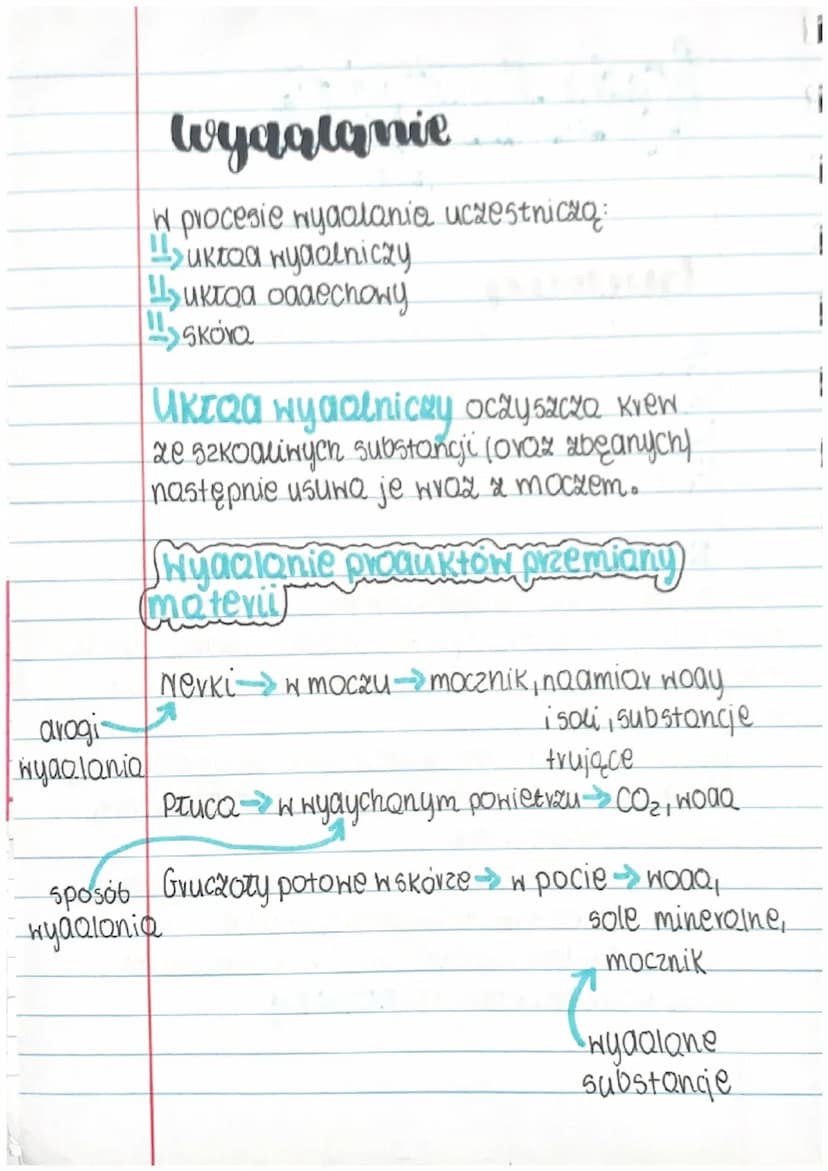 wydalanie
W procesie wydalania uczestniczą:
układ wydalniczy
układ oddechowy
skóra
Układ wydalniczy oczyszcza krew
ze szkodliwych substancji (oraz zbędnych)
następnie usuwa je wraz z moczem.
Wydalanie produktów przemiany
materii
Nerki → w moczu → mocznik, nadmiar wody
i soli, substancje
trujące
drogi
wydalania
Płuca → w wydychanym powietrzu → CO₂, woda
sposób
wydalania
Gruczoły potowe w skórze → w pocie → woda,
sole mineralne,
mocznik
wydalane
substancje